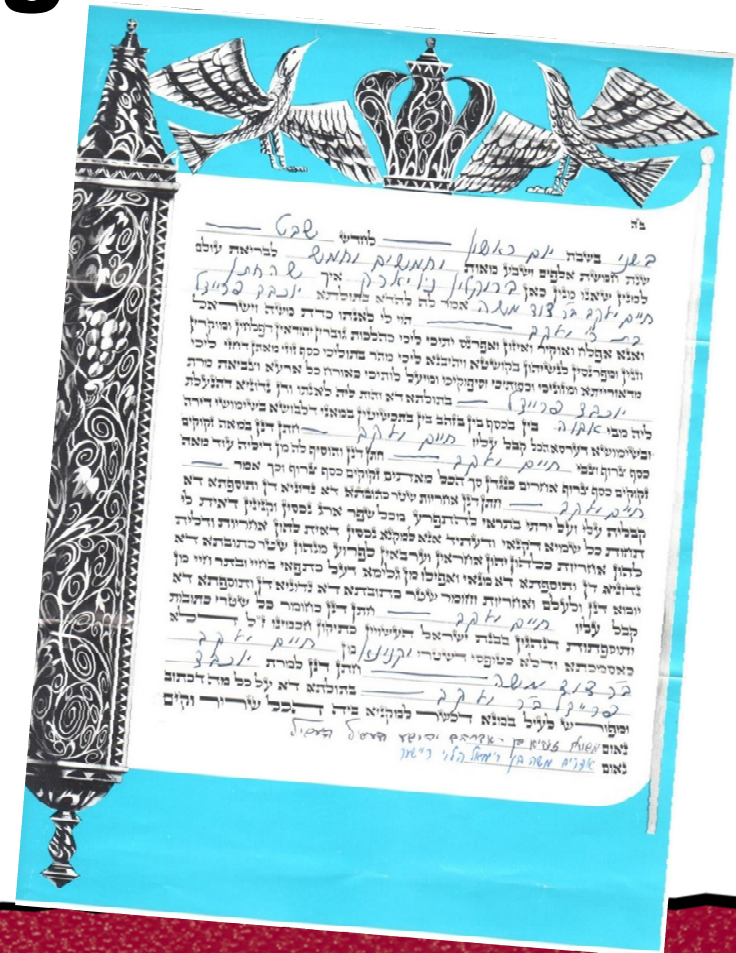 ב"ה
בשני בשבת יום ראשון לחודש שבט
שנת חמשת אלפים ושבע מאות וחמשים וחמש לבריאת עולם
למנין שאנו מנין כאן ברוקלין ניו יארק איך שהחתן
חיים יעקב בר דוד משה אמר לה להדא בתולתא יוכבד פריידל
בת ר' יעקב הוי לי לאנתו כדת משה וישראל
ואנא אפלח ואוקיר ואיזון ואפרנס יתיכי ליכי כהלכות גוברין יהודאין דפלחין ומוקרין
וזנין ומפרנסין לנשיהון בקושטא ויהיבנא ליכי מהר בתוליכי כסף זוזי מאתן דחזי ליכי
מדאורייתא ומזוניכי וכסותיכי וסיפוקיכי ומיעל לותיכי כאורח כל ארעא וצביאת מרת
יוכבד פריידל בתולתא דא והות ליה לאנתו ודן נדוניא דהנעלת
ליה מבי אבוה בין בכסף בין בזהב בין בתכשיטין במאני דלבושא בשימושי דירה
ובשימושא דערסא הכל קבל עליו חיים יעקב חתן דנן במאה זקוקים
כסף צרוף וצבי חיים יעקב חתן דנן והוסיף לה מן דיליה עוד מאה
זקוקים כסף צרוף אחרים כנגדן סך הכל מאתים זקוקים כסף צרוף וכך אמר
חיים יעקב חתן דנן אחריות שטר כתובתא דא נדוניא דן ותוספתא דא
קבלית עלי ועל ירתי בתראי להתפרע מכל שפר ארג נכסין וקנינין דאית לי
תחות כל שמיא דקנאי ודעתיד אנא למקנא נכסין דאית להון אחריות ודלית
להון אחריות כלהון יהון אחראין וערבאין לפרוע מנהון שטר כתובתא דא
נדוניא דן ותוספתא דא מנאי ואפילו מן גלימא דעל כתפאי בחיי ובתר חיי מן
יומא דנן ולעלם ואחריות וחומר שטר כתובתא דא נדוניא דן ותוספתא דא
קבל עליו חיים יעקב חתן דנן כחומר כל שטרי כתובות
ותוספתות דנהגין בבנת ישראל העשויין כתיקון חכמינו ז"ל דלא
כאסמכתא ודלא כטופסי דשטרי וקנינא מן חיים יעקב
בר דוד משה חתן דנן למרת יוכבד
פריידל בר יעקב בתולתא דא על כל מה דכתוב
ומפורש לעיל במנא דכשר למקניא ביה הכל שריר וקים
נאום
נאום משה בן הלוי